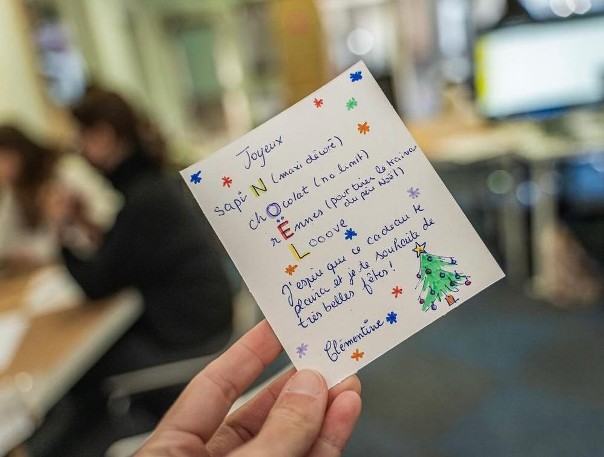 Joyeux
sapiN (maxi décoré)
chOcolat (no limit)
rËnnes (pour tirer le traineau
du père Noël)
Looove
J'espère que ce cadeau te
plaira et je te souhaite de
très belles fêtes!
Clémentine